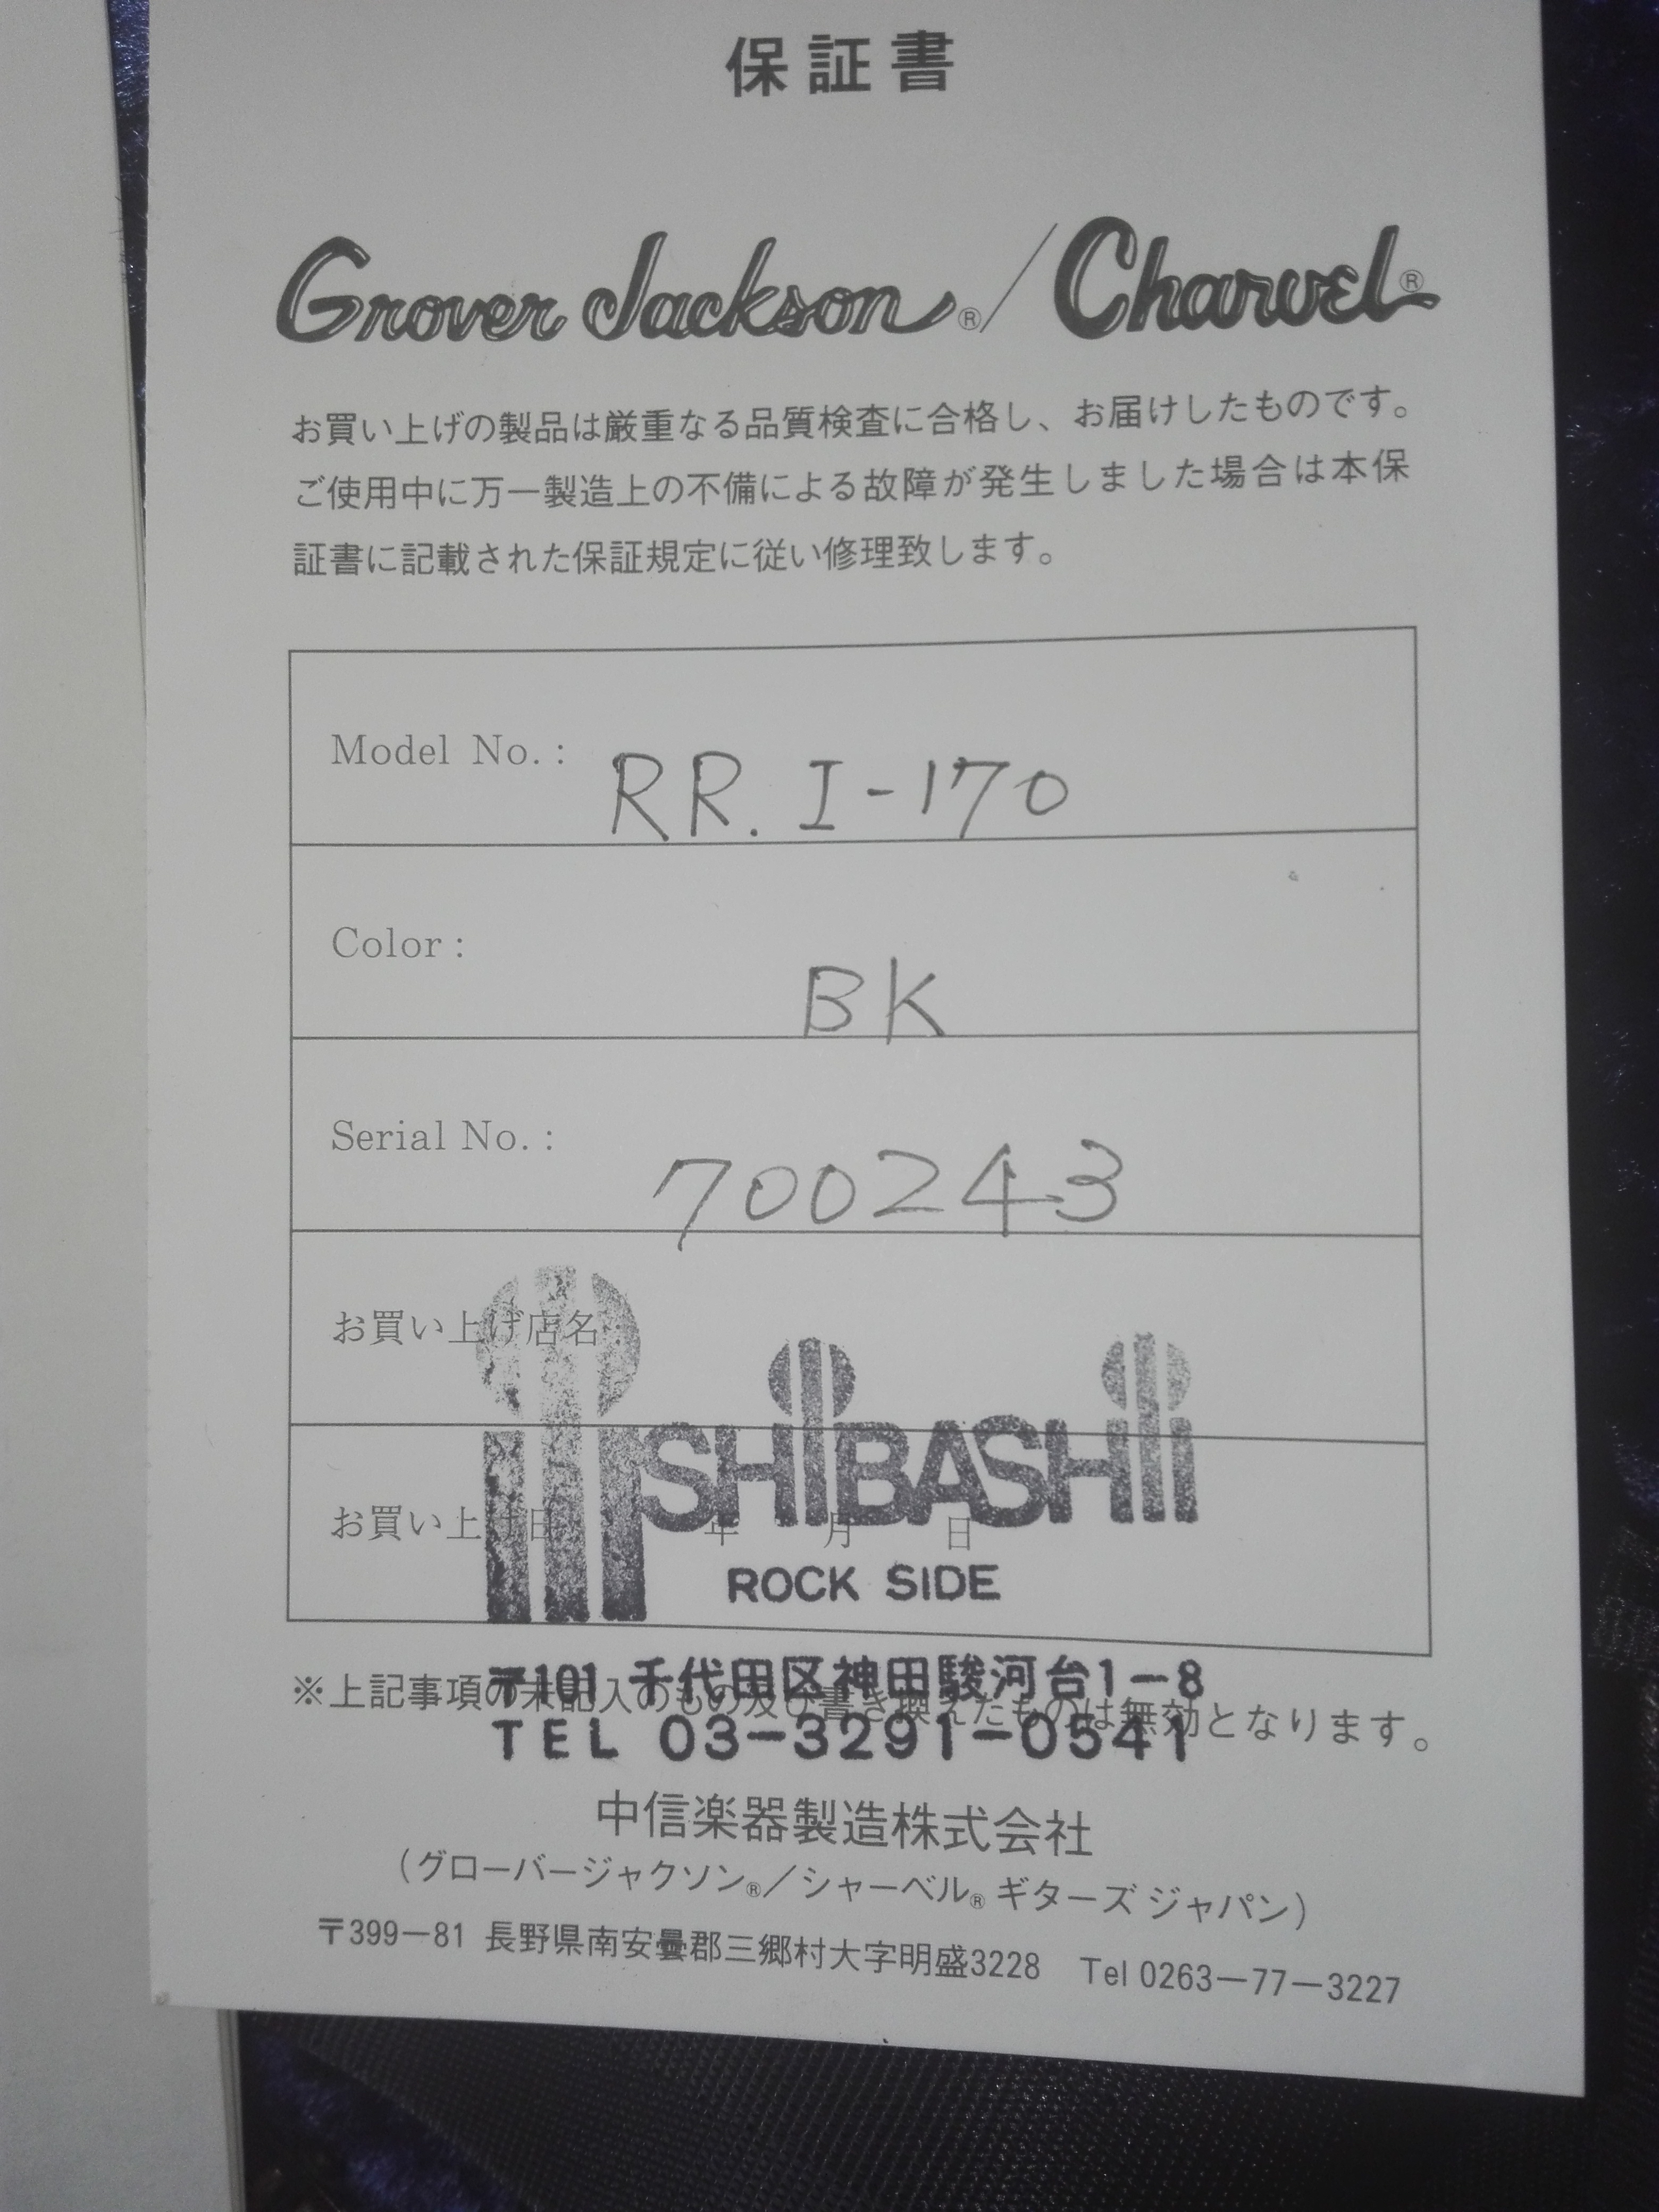 保証書
Grover Jackson®/Charvel®
お買い上げの製品は厳重なる品質検査に合格し、お届けしたものです。
ご使用中に万一製造上の不備による故障が発生しました場合は本保
証書に記載された保証規定に従い修理致します。
Model No.: RR. I-170
Color: BK
Serial No.: 700243
お買い上げ店名:
ISHIBASHI
お買い上げ日 年 月 日
ROCK SIDE
〒101 千代田区神田駿河台1-8
※上記事項の未記入のもの及び書き換えたものは無効となります。
TEL 03-3291-0541
中信楽器製造株式会社
(グローバージャクソン®/シャーベル® ギターズ ジャパン)
〒399-81 長野県南安曇郡三郷村大字明盛3228 Tel 0263-77-3227